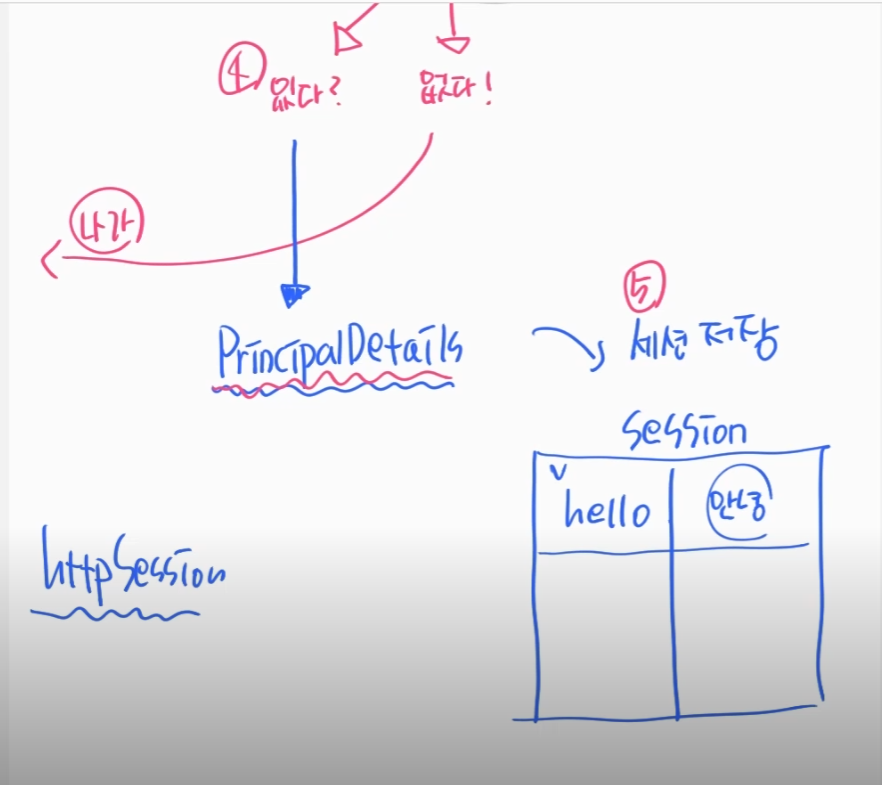 ④ 있다? 없다!
나가
PrincipalDetails
⑤
세션 저장
Session
v
hello 안녕
httpSession